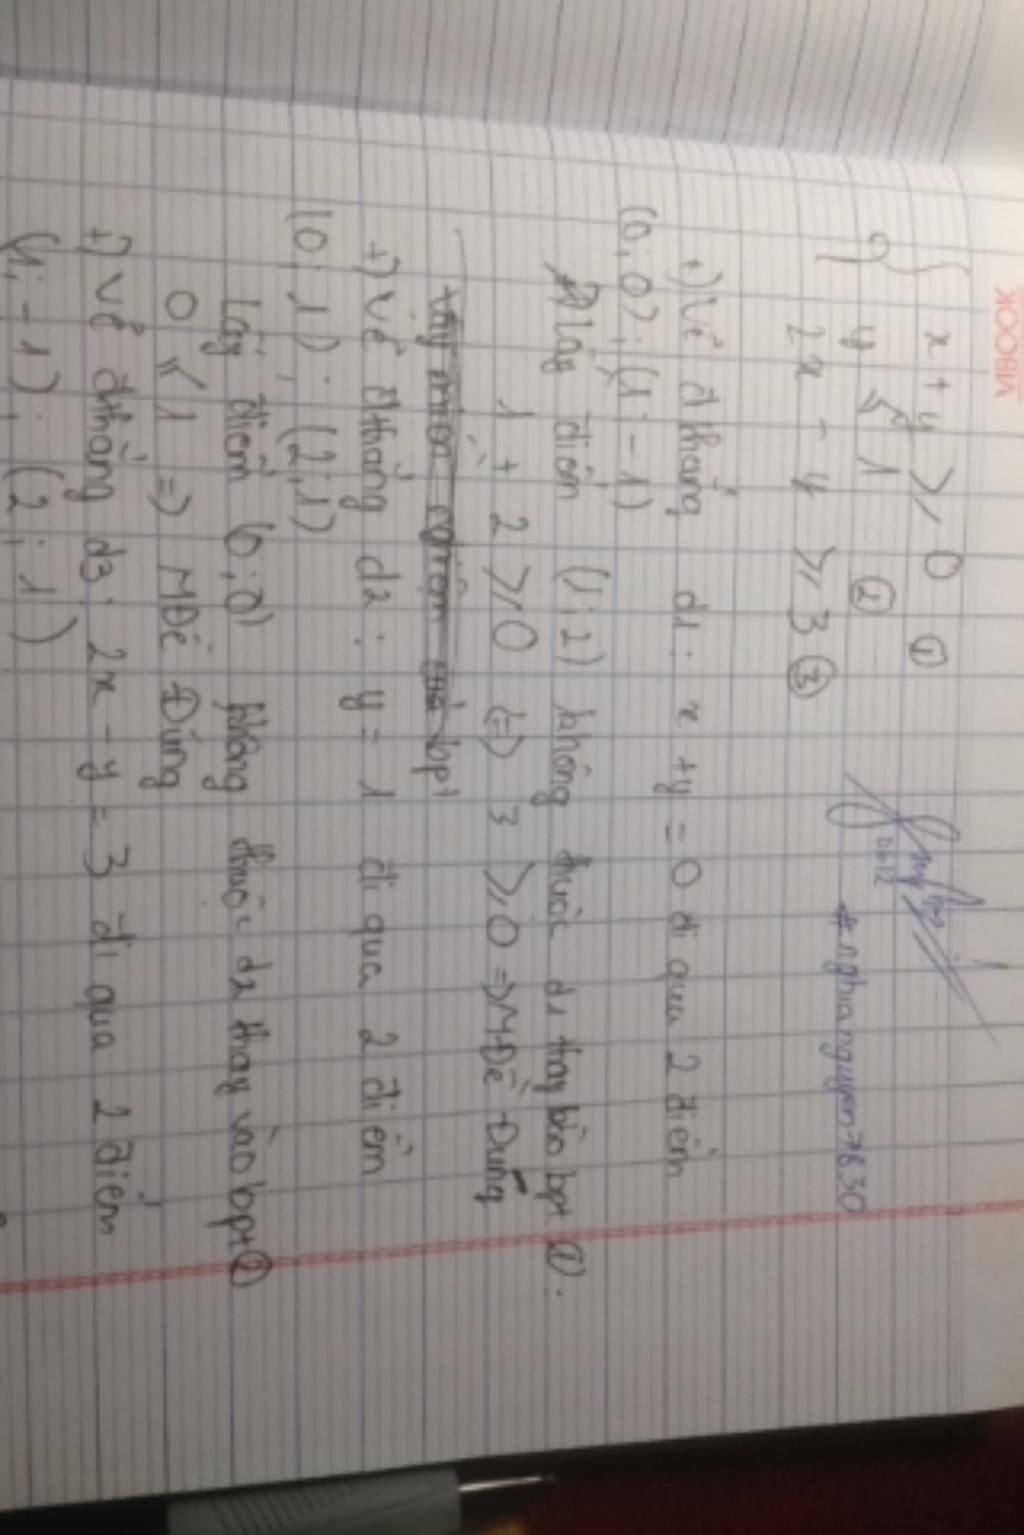 VIBOOK
x + y ⩾ 0 ①
9) { y ⩽ 1 ②
2x - y ⩾ 3 ③
#nghianguyen7830
+) Vẽ đthẳng d1: x + y = 0 đi qua 2 điểm
(0; 0); (1; -1)
Lấy điểm (1; 2) không thuộc d1 thay vào bpt ①.
1 + 2 ⩾ 0 (=) 3 ⩾ 0 => MĐề Đúng
bpt
+) Vẽ đthẳng d2: y = 1 đi qua 2 điểm
(0; 1); (2; 1)
Lấy điểm (0; 0) không thuộc d2 thay vào bpt ②
0 ⩽ 1 => MĐề Đúng
+) Vẽ đthẳng d3: 2x - y = 3 đi qua 2 điểm
(1; -1); (2; 1)